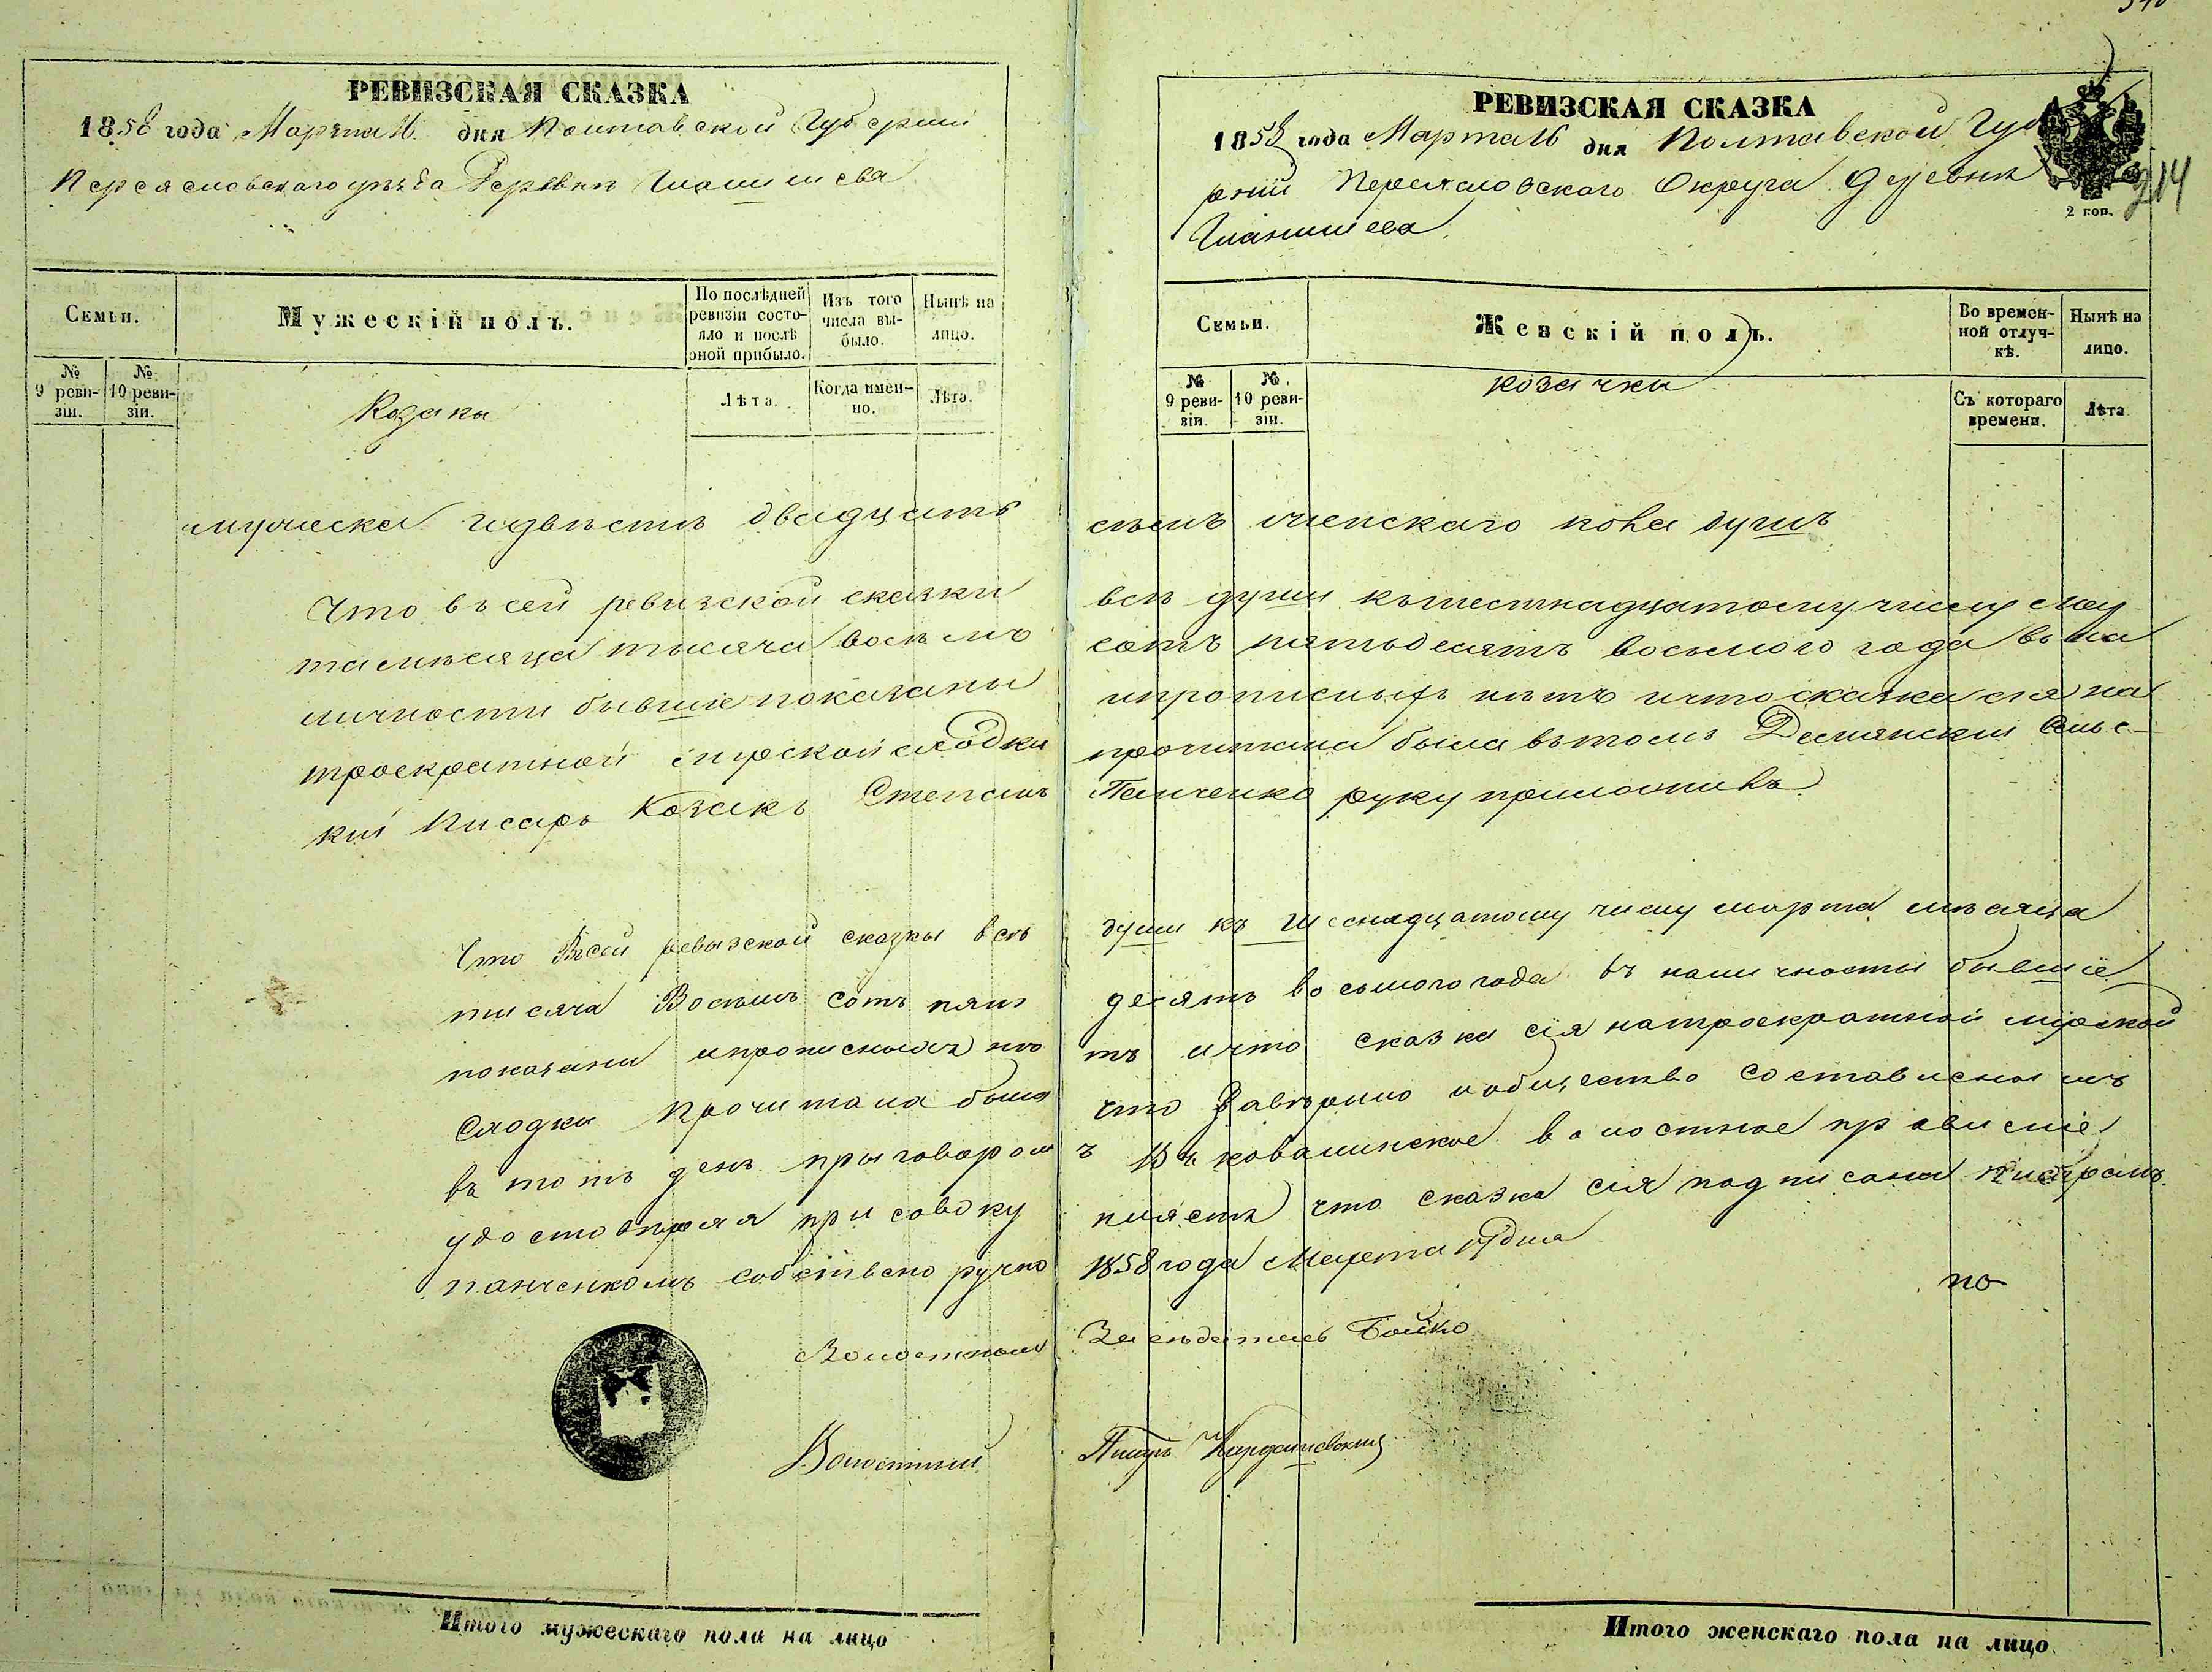 РЕВИЗСКАЯ СКАЗКА
1858 года Марта 16 дня Полтавской Губернии
Переясловского уезда Деревни
Семьи.
Мужескій полъ.
По послѣдней ревизіи состояло и послѣ оной прибыло.
Изъ того числа выбыло.
Нынѣ на лицо.
№ 9 ревизіи.
№ 10 ревизіи.
Козаки
Лѣта.
Когда именно.
Лѣта.
мужеска двѣсти двадцать
Что въ сей ревизской сказки
та мѣсяца тысяча восемъ
личности бывшіе показаны
троекратной мірской сходки
кій Писарь Козакъ Степанъ
Что Въсей ревизской сказки всѣ
тисяча Восемъ сотъ пять
показани ипрописныхъ нѣ
Сходки Прочитана была
въ тотъ день приговором
удостовѣряя присовоку
панченкомъ собствено ручно
Волостной
Волостный
Итого мужескаго пола на лицо
РЕВИЗСКАЯ СКАЗКА
1858 года Марта 16 дня Полтавской Губе
рніи Переясловского Округа Деревни
2 коп.
214
Семьи.
Женскій полъ.
Во временной отлучкѣ.
Нынѣ на лицо.
№ 9 ревизіи.
№ 10 ревизіи.
козачки
Съ котораго времени.
Лѣта
семъ женскаго пола душъ
всѣ души къшестнадцатому числу мар
сотъ пятьдесятъ восьмого года въ на
ипрописныхъ нѣтъ ичтосказка сія на
прочитана была въ томъ Демянскій Сельс-
Панченко руку приложивъ
души къ Шеснадцатому числу марта мѣсяца
десятъ восьмого года въ наличности бывшіе
тъ ичто сказка сія натроекратной мірской
что Завѣрино иобщество составленымъ
ъ волостное правленіе
пляетъ что сказка сія подписана писаремъ
1858 года Марта дня
по
Засѣдатель Бойко
Писарь
Итого женскаго пола на лицо.